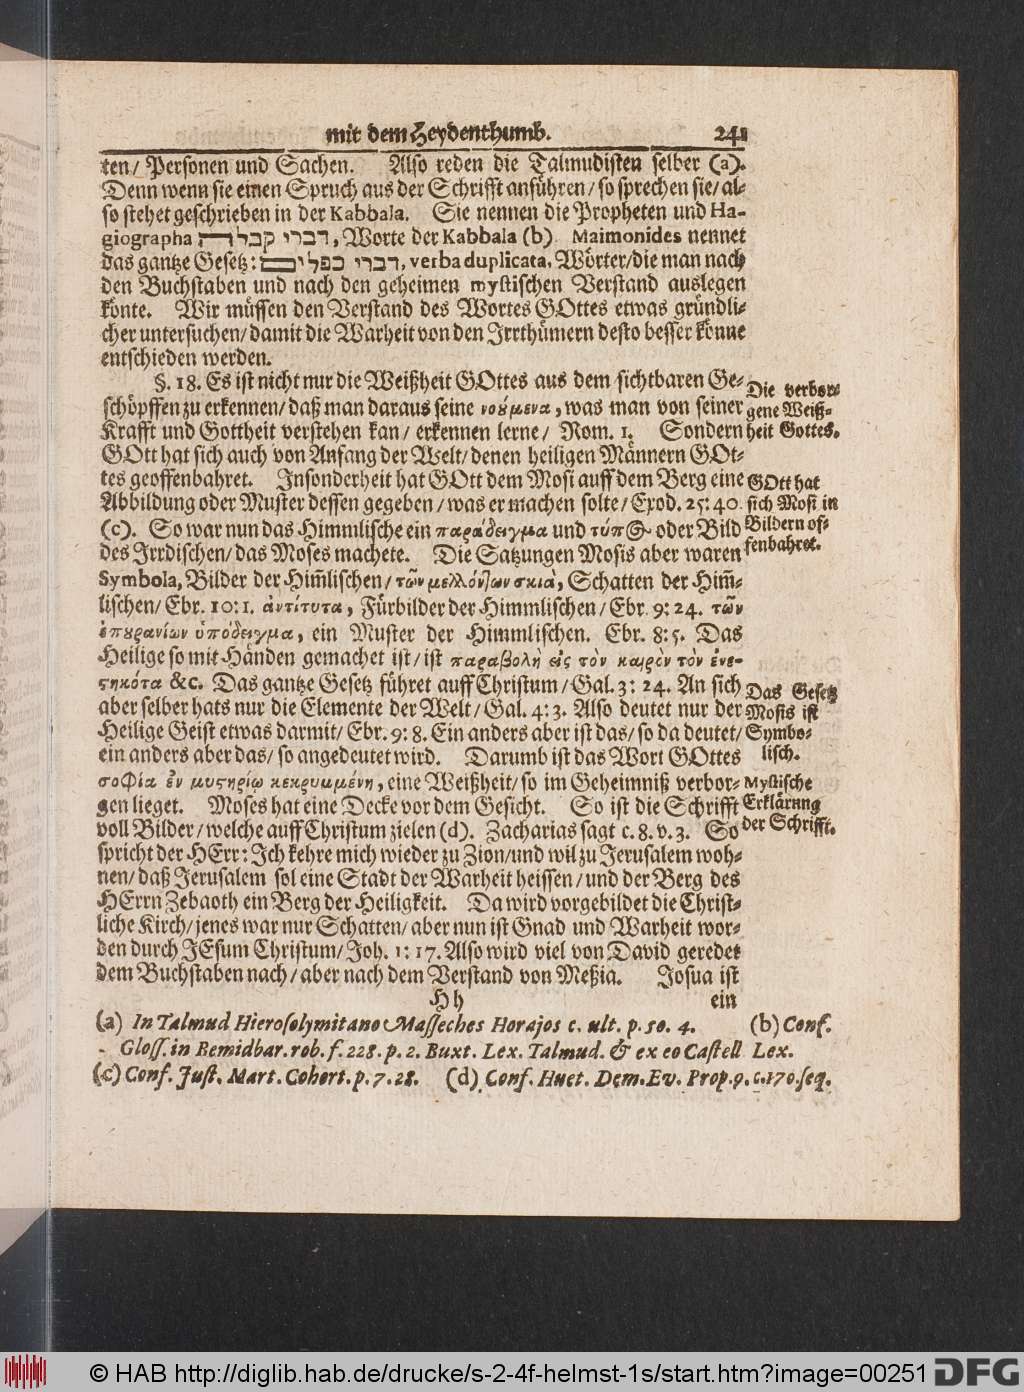 mit dem Heydenthumb. 241
ten/ Personen und Sachen. Also reden die Talmudisten selber (a).
Denn wenn sie einen Spruch aus der Schrifft anführen/ so sprechen sie/ al-
so stehet geschrieben in der Kabbala. Sie nennen die Propheten und Ha-
giographa דברי קבלה, Worte der Kabbala (b) Maimonides nennet
das gantze Gesetz: דברי כפלים, verba duplicata, Wörter/die man nach
den Buchstaben und nach den geheimen mystischen Verstand auslegen
könte. Wir müssen den Verstand des Wortes GOttes etwas gründli-
cher untersuchen/ damit die Warheit von den Irrthümern desto besser könne
entschieden werden.
§. 18. Es ist nicht nur die Weißheit GOttes aus dem sichtbaren Ge-
schöpffen zu erkennen/ daß man daraus seine νούμενα, was man von seiner
Krafft und Gottheit verstehen kan/ erkennen lerne/ Rom. 1. Sondern
GOtt hat sich auch von Anfang der Welt/ denen heiligen Männern GOt-
tes geoffenbahret. Insonderheit hat GOtt dem Mosi auff dem Berg eine
Abbildung oder Muster dessen gegeben / was er machen solte/ Exod. 25: 40.
(c). So war nun das Himmlische ein παράδειγμα und τύπ oder Bild
des Irrdischen/ das Moses machete. Die Satzungen Mosis aber waren
Symbola, Bilder der Him̃lischen/ τῶν μελλόντων σκιὰ, Schatten der Him̃-
lischen/ Ebr. 10: 1. ἀντίτυτα, Fürbilder der Himmlischen/ Ebr. 9: 24. τῶν
ἐπουρανίων ὑπόδειγμα, ein Muster der Himmlischen. Ebr. 8: 5. Das
Heilige so mit Händen gemachet ist/ ist παραβολὴ εἰς τὸν καιρὸν τὸν ἐνε-
ϛηκότα &c. Das gantze Gesetz führet auff Christum/ Gal. 3: 24. An sich
aber selber hats nur die Elemente der Welt/ Gal. 4: 3. Also deutet nur der
Heilige Geist etwas darmit/ Ebr. 9: 8. Ein anders aber ist das/ so da deutet/
ein anders aber das/ so angedeutet wird. Darumb ist das Wort GOttes
σοφία ἐν μυϛηρίῳ κεκρυμμένη, eine Weißheit/ so im Geheimniß verbor-
gen lieget. Moses hat eine Decke vor dem Gesicht. So ist die Schrifft
voll Bilder/ welche auff Christum zielen (d). Zacharias sagt c. 8. v. 3. So
spricht der HErr: Ich kehre mich wieder zu Zion/und wil zu Jerusalem woh-
nen/ daß Jerusalem sol eine Stadt der Warheit heissen / und der Berg des
HErrn Zebaoth ein Berg der Heiligkeit. Da wird vorgebildet die Christ-
liche Kirch/ jenes war nur Schatten/ aber nun ist Gnad und Warheit wor-
den durch JEsum Christum/ Joh. 1: 17. Also wird viel von David geredet
dem Buchstaben nach / aber nach dem Verstand von Meßia. Josua ist
Hh ein
Die verbor-
gene Weiß-
heit Gottes.
GOtt hat
sich Mosi in
Bildern of-
fenbahret.
Das Gesetz
Mosis ist
Symbo-
lisch.
Mystische
Erklärung
der Schrifft.
(a) In Talmud Hierosolymitano Masseches Horajos c. ult. p. 50. 4. (b) Conf.
Gloss. in Bemidbar. rob. f. 228. p. 2. Buxt. Lex. Talmud. & ex eo Castell Lex.
(c) Conf. Just. Mart. Cohort. p. 7. 28. (d) Conf. Huet. Dem. Ev. Prop. 9. c. 170. seq.
© HAB http://diglib.hab.de/drucke/s-2-4f-helmst-1s/start.htm?image=00251 DFG